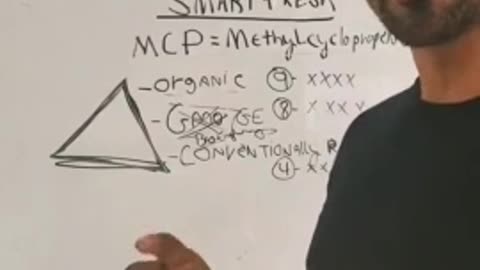 SMARTFRESH
MCP = MethylCyclopropen
-ORGANIC 9- XXXX
- GE 8- XXXX
-CONVENTIONALLY
4- XX